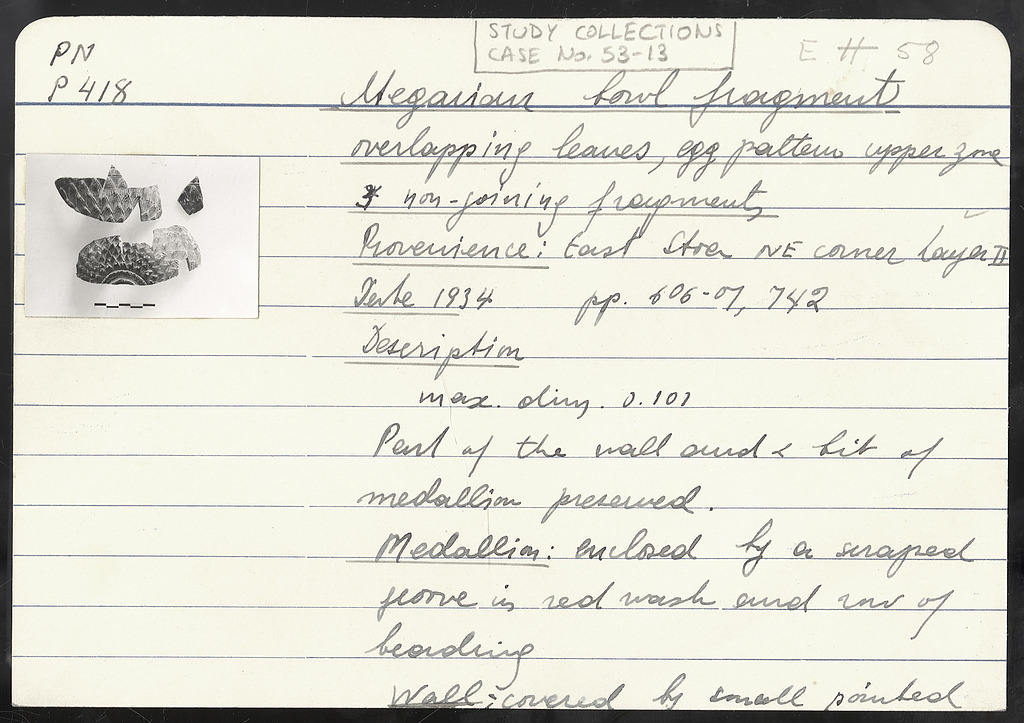 STUDY COLLECTIONS
CASE No. 53-13
E H 58
PN
P 418
Megarian bowl fragment
overlapping leaves, egg pattern upper zone
non-joining fragments
Provenience: East Stoa NE corner Layer II
Date 1934 pp. 606-07, 742
Description
max. dim. 0.101
Part of the wall and a bit of
medallion preserved.
Medallion: enclosed by a scraped
groove in red wash and row of
beading
Wall: covered by small pointed